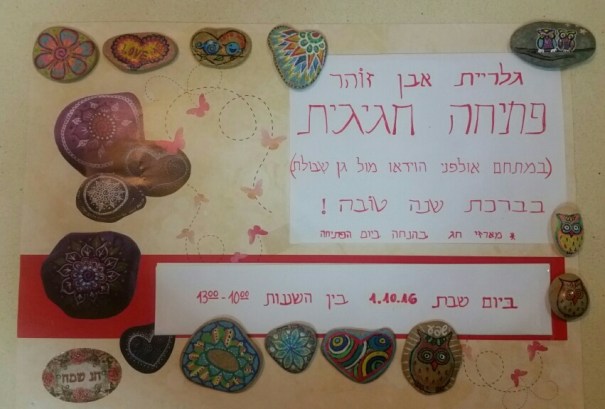 LOVE
גלריית אבן זוהר
פתיחה חגיגית
(במתחם אולפני הוידאו מול גן שעולת)
בברכת שנה טובה!
* מארזי חג בהנחה ביום הפתיחה
ביום שבת 1.10.16 בין השעות 10⁰⁰-13⁰⁰
חג שמח